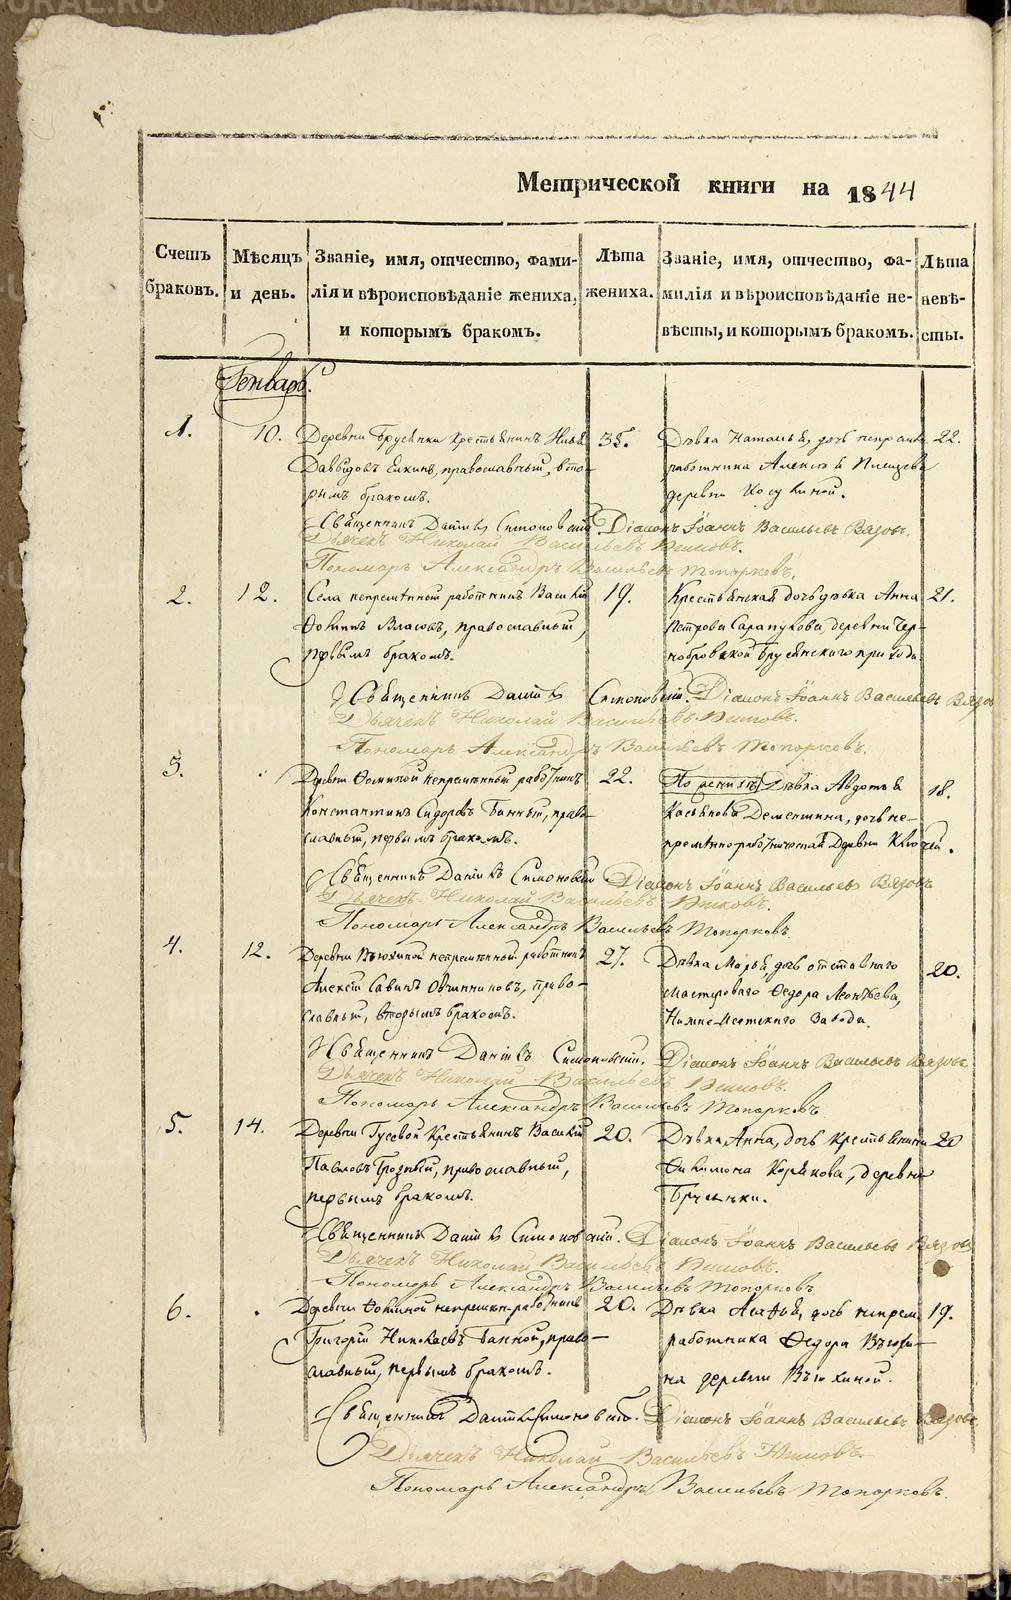 Метрической книги на 1844
Счетъ браковъ.
Мѣсяцъ и день.
Званіе, имя, отчество, фами-
лія и вѣроисповѣданіе жениха,
и которымъ бракомъ.
Лѣта жениха.
Званіе, имя, отчество, фа-
милія и вѣроисповѣданіе не-
вѣсты, и которымъ бракомъ.
Лѣта невѣ-
сты.
Генварь.
1. 10. Деревни Брусянки крестьянинъ
Давыдовъ Елкинъ, православный, вто-
рымъ бракомъ.
35.
Дѣвка Наталья, дочь
работника Алексѣя
деревни
22.
Священникъ Даніилъ Симоновскій. Діаконъ Іоаннъ Васильевъ Вязовъ.
Дьячекъ Николай Васильевъ
Пономарь Александръ Васильевъ Топорковъ.
2. 12. Села непремѣнной работникъ Василій
Ѳокинъ Власовъ, православный,
первымъ бракомъ.
19.
Крестьянская дочь дѣвка Анна
Петрова Сарапулова, деревни Чер-
нобровкой Брусянского прихода.
21.
Священникъ Даніилъ Симоновскій. Діаконъ Іоаннъ Васильевъ Вязовъ
Дьячекъ Николай Васильевъ
Пономарь Александръ Васильевъ Топорковъ.
3. Деревни Ѳоминой непремѣнный работникъ
Константинъ Сидоровъ Банный, право-
славный, первымъ бракомъ.
22.
Дѣвка Авдотья
Касьянова Дементьина, дочь не-
Деревни Ключей.
18.
Священникъ Даніилъ Симоновскій Діаконъ Іоаннъ Васильевъ Вязовъ
Дьячекъ Николай Васильевъ
Пономарь Александръ Васильевъ Топорковъ
4. 12. Деревни Вьюхиной непремѣнной работникъ
Алексій Савинъ Овчинниковъ, право-
славный, вторымъ бракомъ.
27.
Дѣвка Марья, дочь отставнаго
мастероваго Ѳедора Леонтьева,
Нижне-Исетскаго Завода.
20.
Священникъ Даніилъ Симоновскій. Діаконъ Іоаннъ Васильевъ Вязовъ
Дьячекъ Николай Васильевъ
Пономарь Александръ Васильевъ Топорковъ
5. 14. Деревни Гусевой крестьянинъ Василій
Павловъ Грозный, православный,
первымъ бракомъ.
20.
Дѣвка Анна, дочь крестьянина
Филимона Корякова, деревни
Брусянки.
20
Священникъ Даніилъ Симоновскій. Діаконъ Іоаннъ Васильевъ Вязовъ
Дьячекъ Николай Васильевъ
Пономарь Александръ Васильевъ Топорковъ.
6. Деревни Ѳоминой непремѣн. работникъ
Григорій Николаевъ Банной, право-
славный, первымъ бракомъ.
20.
Дѣвка Агафья, дочь непрем.
работника Ѳедора Вьюхи-
на деревни Вьюхиной.
19.
Священникъ Даніилъ Симоновскій. Діаконъ Іоаннъ Васильевъ Вязовъ
Дьячекъ Николай Васильевъ
Пономарь Александръ Васильевъ Топорковъ.
METRIKI.GASO-URAL.RU